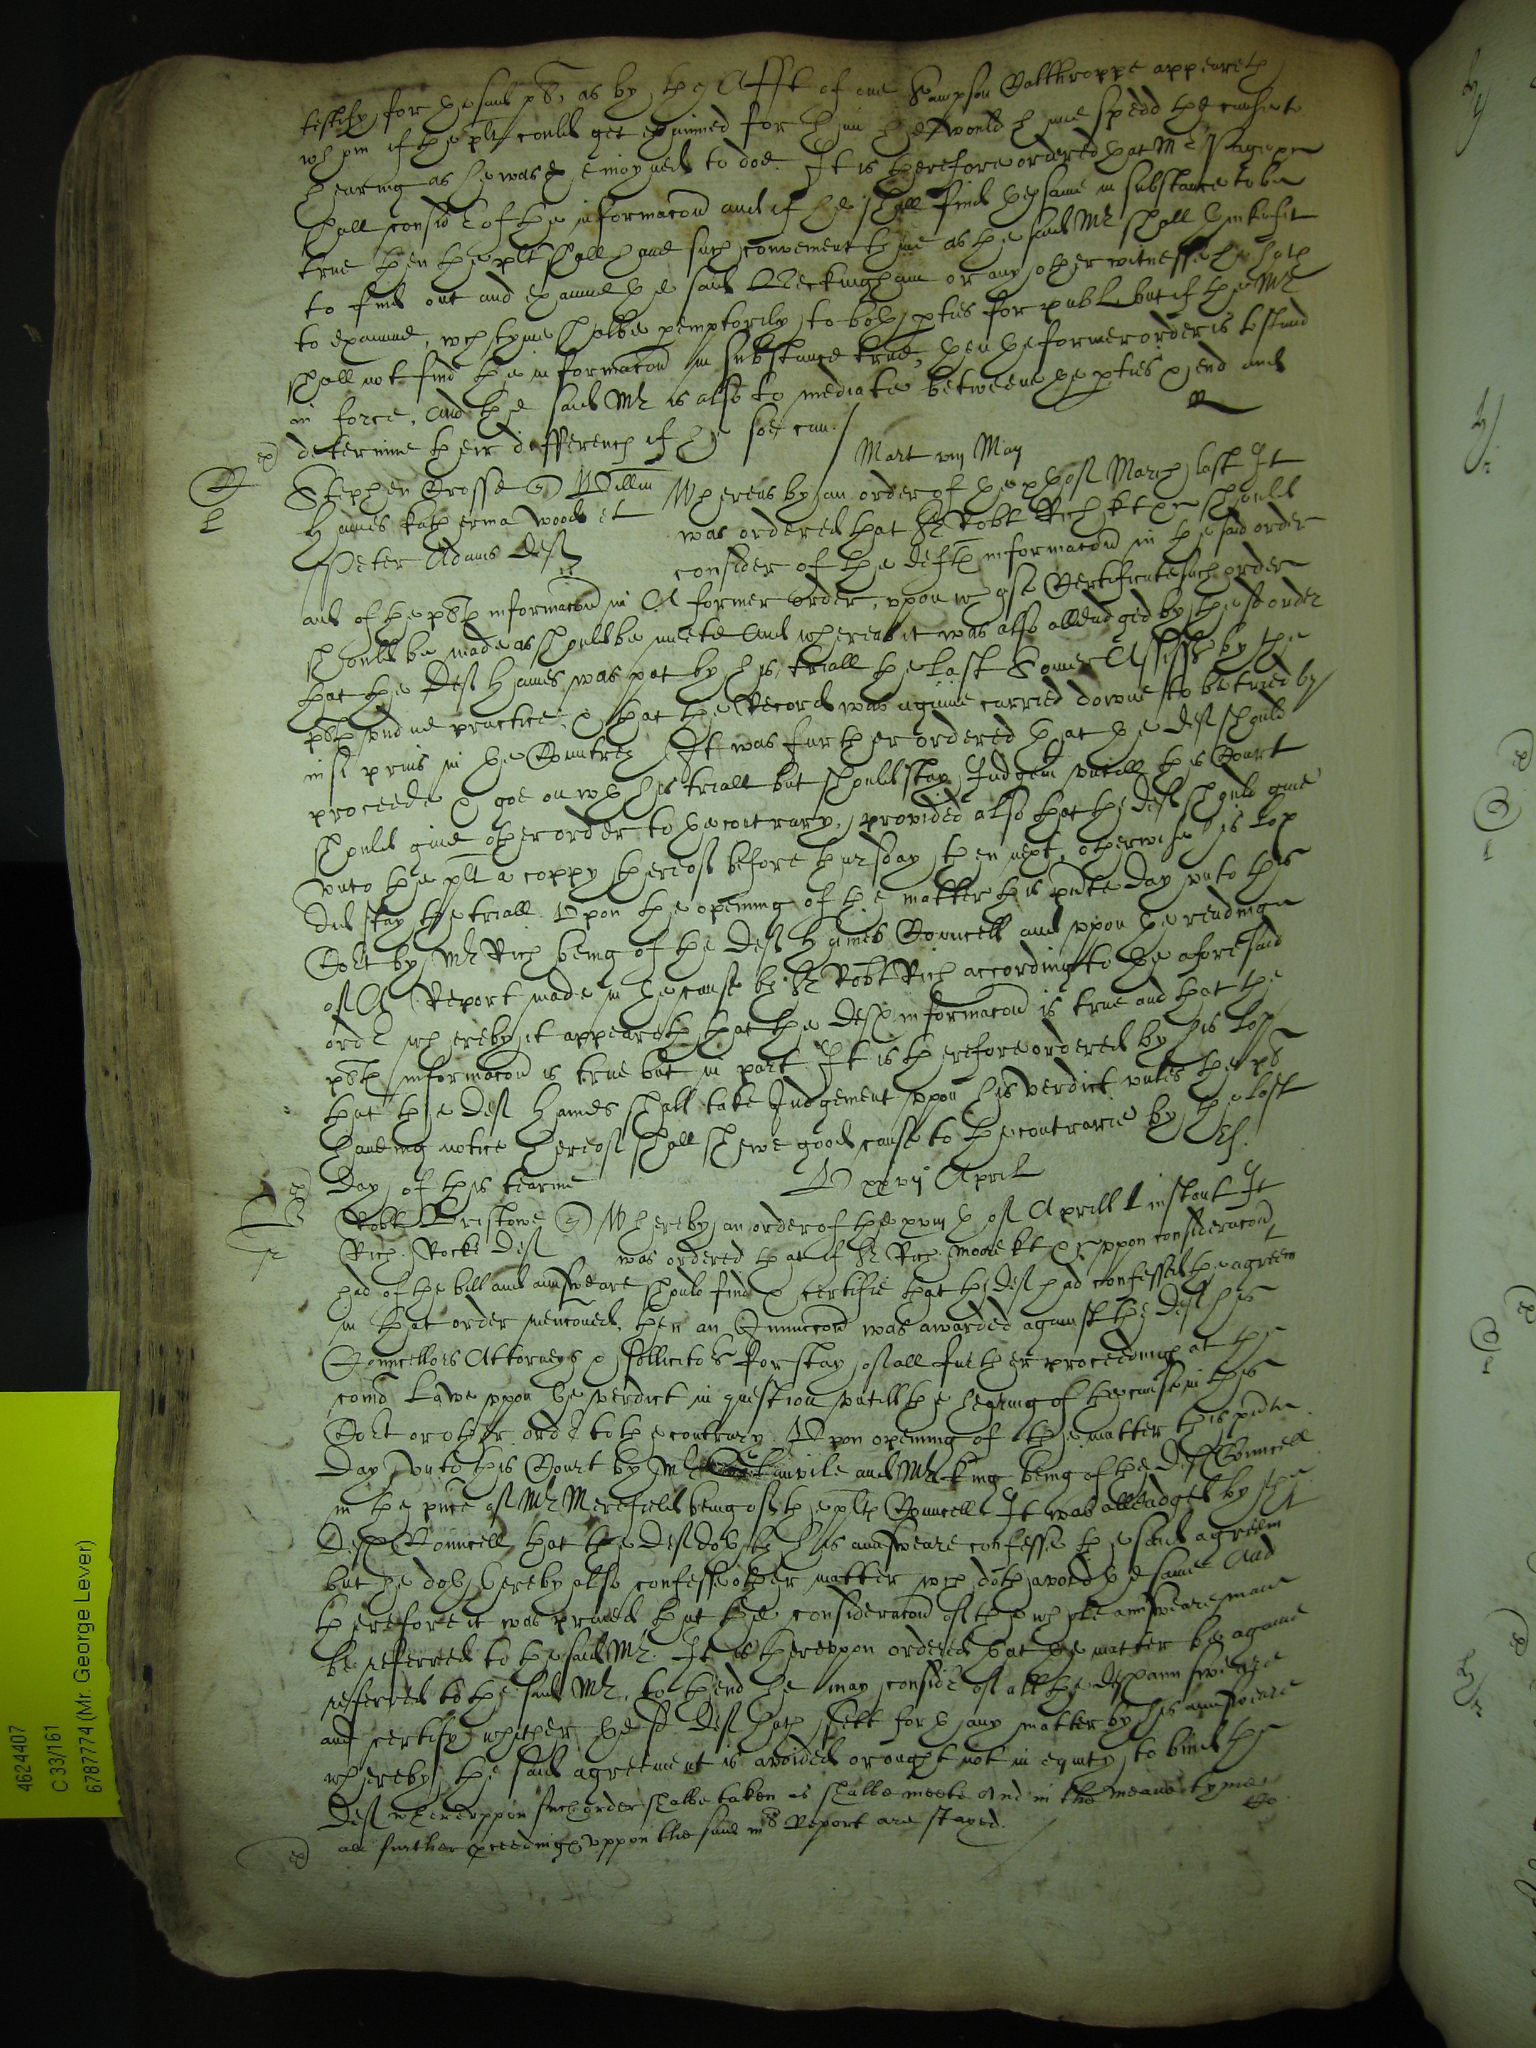 testify for the said pt, as by the Afft of one Sampson Calthroppe appeareth
whom if the plt could get examined for him he would have spedd the cause to
hearing as he was enioyned to doe. It is therefore ordered that Mr
shall consider of the informacon and if he shall find the same in substance to be
true then the plt shall have such convenient time as the said Mr shall thinke fit
to find out and examine the said Beckingham or any other witnesses he hath
to examine, wch tyme shalbe pemptorily to both pties for publ. but if the Mr
shall not find the informacon in substance true, then the former order is to stand
in force, And the said Mr is also to mediate betweene the pties & end and
determine their difference if he soe can /
Mart viij May
Stephen Crosse Willm
Haines Katherina Woods et
Peter Adams Deft
Whereas by an order of the of March last It
was ordered that Sr Robt Rich kt &c should
consider of the defts informacon in the said order
and of the plts informacon in A former order, uppon whose Certificate such order
should be made as should be meete And whereas it was also alleadged by the sd order
that the Deft Haines was put by his triall the last Somer Assisses by the
plts undue practice & that the Record was againe carried downe to be tried by
nisi prius in the Countrey It was further ordered that the deft should
proceede & goe on wth his triall but should stay Iudgemt untill this Court
should give other order to the contrary, provided also that the deft should give
unto the plt a coppy thereof before thursday then next, otherwise his Lop
did stay the triall. Upon the opening of the matter this pnte day unto this
Cort by Mr Rich being of the Deft Haines Councell and uppon the readinge
of A Report made in the cause by Sr Robt Rich according to the aforesaid
order whereby it appeareth that the Defts informacon is true and that the
plts informacon is true but in part It is therefore ordered by his Lop
that the Deft Haines shall take Iudgement uppon his verdict unles the pt
haveing notice hereof shall shewe good cause to the contrarie by the last
Day of this tearme
D xxvij April
Robt Bristowe
Rich. Rocke Deft
Whereby an order of the xviijth of Aprill instant It
was ordered that if Sr Rich. Moore kt &c uppon consideracon
had of the bill and answeare should find & certifie that the deft had confessed the agreemt
in that order mencioned, then an Iniunccon was awarded against the Deft his
Councellors Attorneys & sollicitors for stay of all further proceedings at the
comon Lawe uppon the verdict in question untill the hearing of the cause in this
Cort or other order to the contrary. Upon opening of the matter this pnte
Day unto this Court by Mr and Mr King being of the Defts Councell
in the pnce of Mr Merefeild being of the plts Councell It was alleadged by the
Defts Councell that the Deft doth by his answeare confesse the said agreemt
but he doth thereby also confesse other matter wch doth avoid the same And
therefore it was praied that the consideracon of the whole answeare maie
be referred to the said Mr. It is thereuppon ordered that the matter be againe
referred to the said Mr, to thend he may consider of all the Defts answeare
and certify whether the sd Deft hath sett forth any matter by his answeare
whereby the said agreement is avoided or ought not in equity to bind the
Deft whereuppon such order shalbe taken as shalbe meete And in the meane tyme
all further pceedings uppon the said mr Report are stayed.
4624407
C 33/161
6787774 (Mr. George Lever)